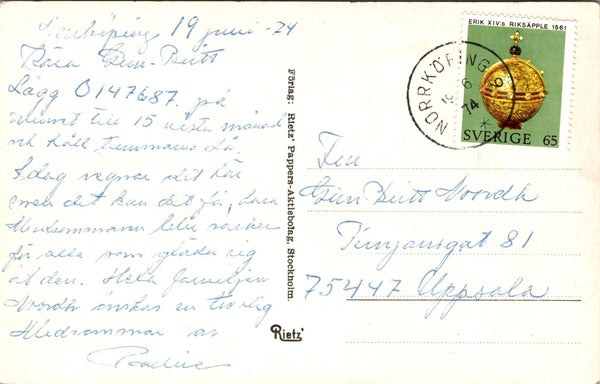 Norrköping 19 juni -74
Kära Gun-Britt
Lägg 0147687. på
minnet till 15 nästa månad
och håll tummarna då.
Idag regnar det här
men det kan det få, bara
Midsommarn blir vacker
för alla som gläder sig
åt den. Hela familjen
Nordh önskas en trevlig
Midsommar av
Förlag: Rietz' Pappers-Aktiebolag, Stockholm.
Rietz'
ERIK XIV:s RIKSÄPPLE 1561
SVERIGE 65
NORRKÖPING
19 6
74
Fru
Gun Britt Nordh
Timjansgat 81
75447 Uppsala